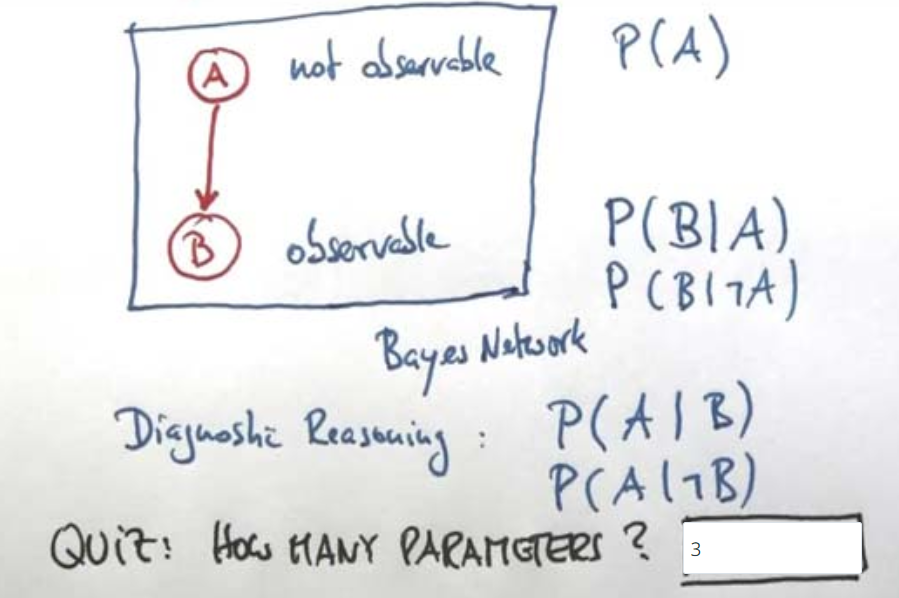 A not observable P(A)
B observable P(B|A)
P(B|¬A)
Bayes Network
Diagnostic Reasoning : P(A|B)
P(A|¬B)
QUIZ: HOW MANY PARAMETERS ? 3